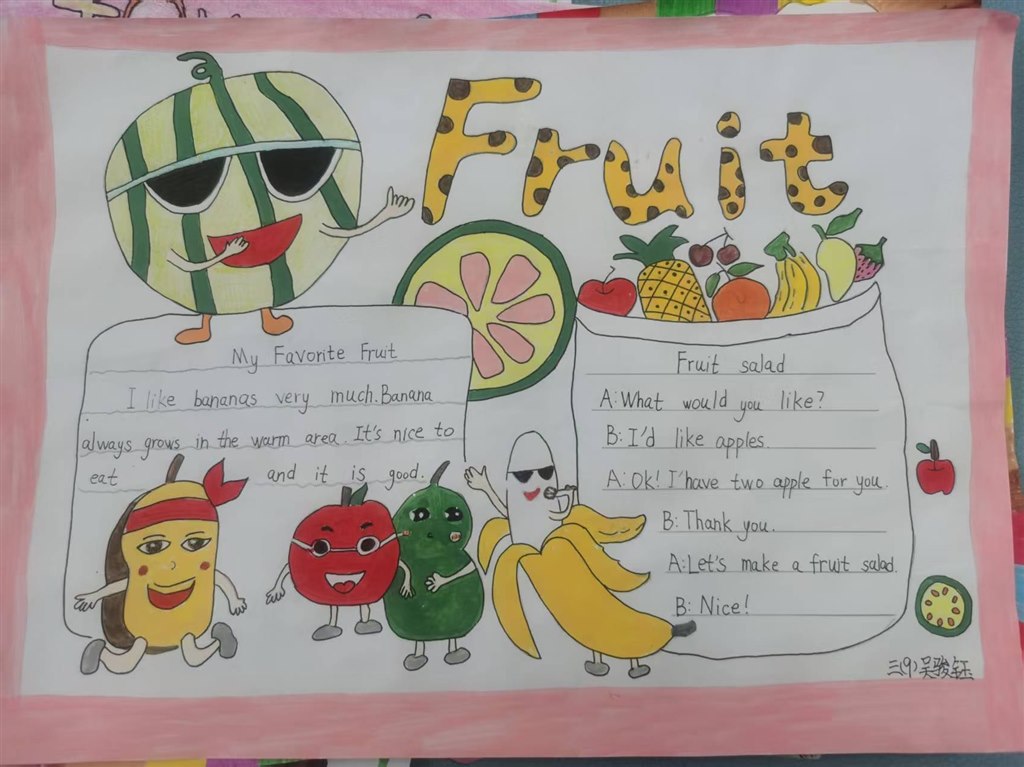 Fruit
My Favorite Fruit
I like bananas very much.Banana
always grows in the warm area. It's nice to
eat and it is good.
Fruit salad
A:What would you like?
B:I'd like apples.
A:Ok! I'have two apple for you.
B:Thank you.
A:Let's make a fruit salad.
B:Nice!
三(9)吴骏钰